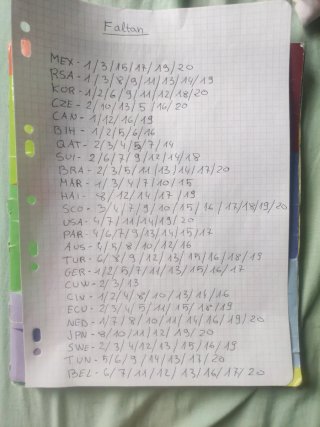 Faltan
MEX - 1/3/15/17/19/20
RSA - 1/3/8/9/11/13/14/19
KOR - 1/2/6/9/11/12/18/20
CZE - 2/10/13/5/16/20
CAN - 1/12/16/19
BIH - 1/2/5/6/16
QAT - 2/3/4/5/7/14
SUI - 2/6/7/9/12/14/18
BRA - 2/3/5/11/13/14/17/20
MAR - 1/3/4/7/10/15
HAI - 8/12/14/17/19
SCO - 3/4/7/9/10/15/16/17/18/19/20
USA - 4/7/11/14/19/20
PAR - 4/6/7/9/13/14/15/17
AUS - 4/5/8/10/12/16
TUR - 6/8/9/12/13/15/16/18/19
GER - 1/2/5/7/11/13/15/16/17
CUW - 2/3/13
CIV - 1/2/4/8/10/13/14/16
ECU - 2/3/4/5/11/15/18/19
NED - 1/7/8/10/11/14/16/19/20
JPN - 8/10/11/12/19/20
SWE - 2/3/4/12/13/15/16/19
TUN - 5/6/9/14/13/17/20
BEL - 6/7/11/12/13/16/17/20